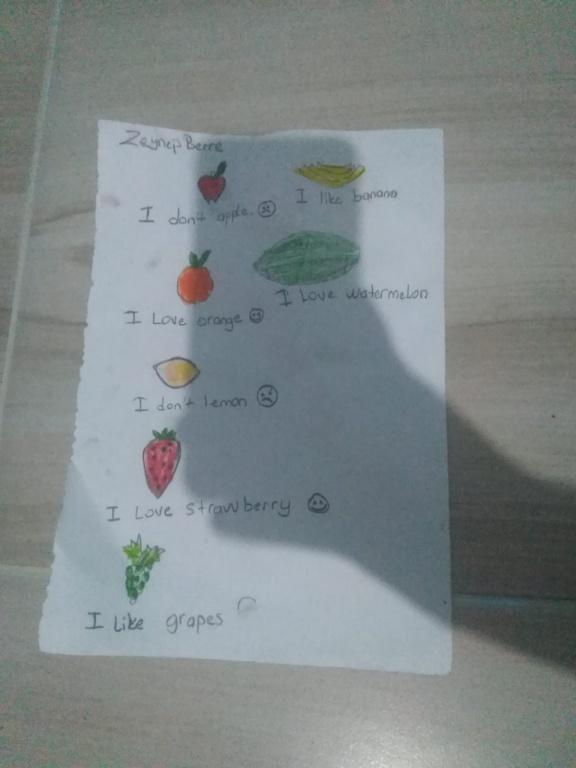 Zeynep Berre
I don't apple.
I like banana
I Love orange
I Love watermelon
I don't lemon
I Love strawberry
I Like grapes